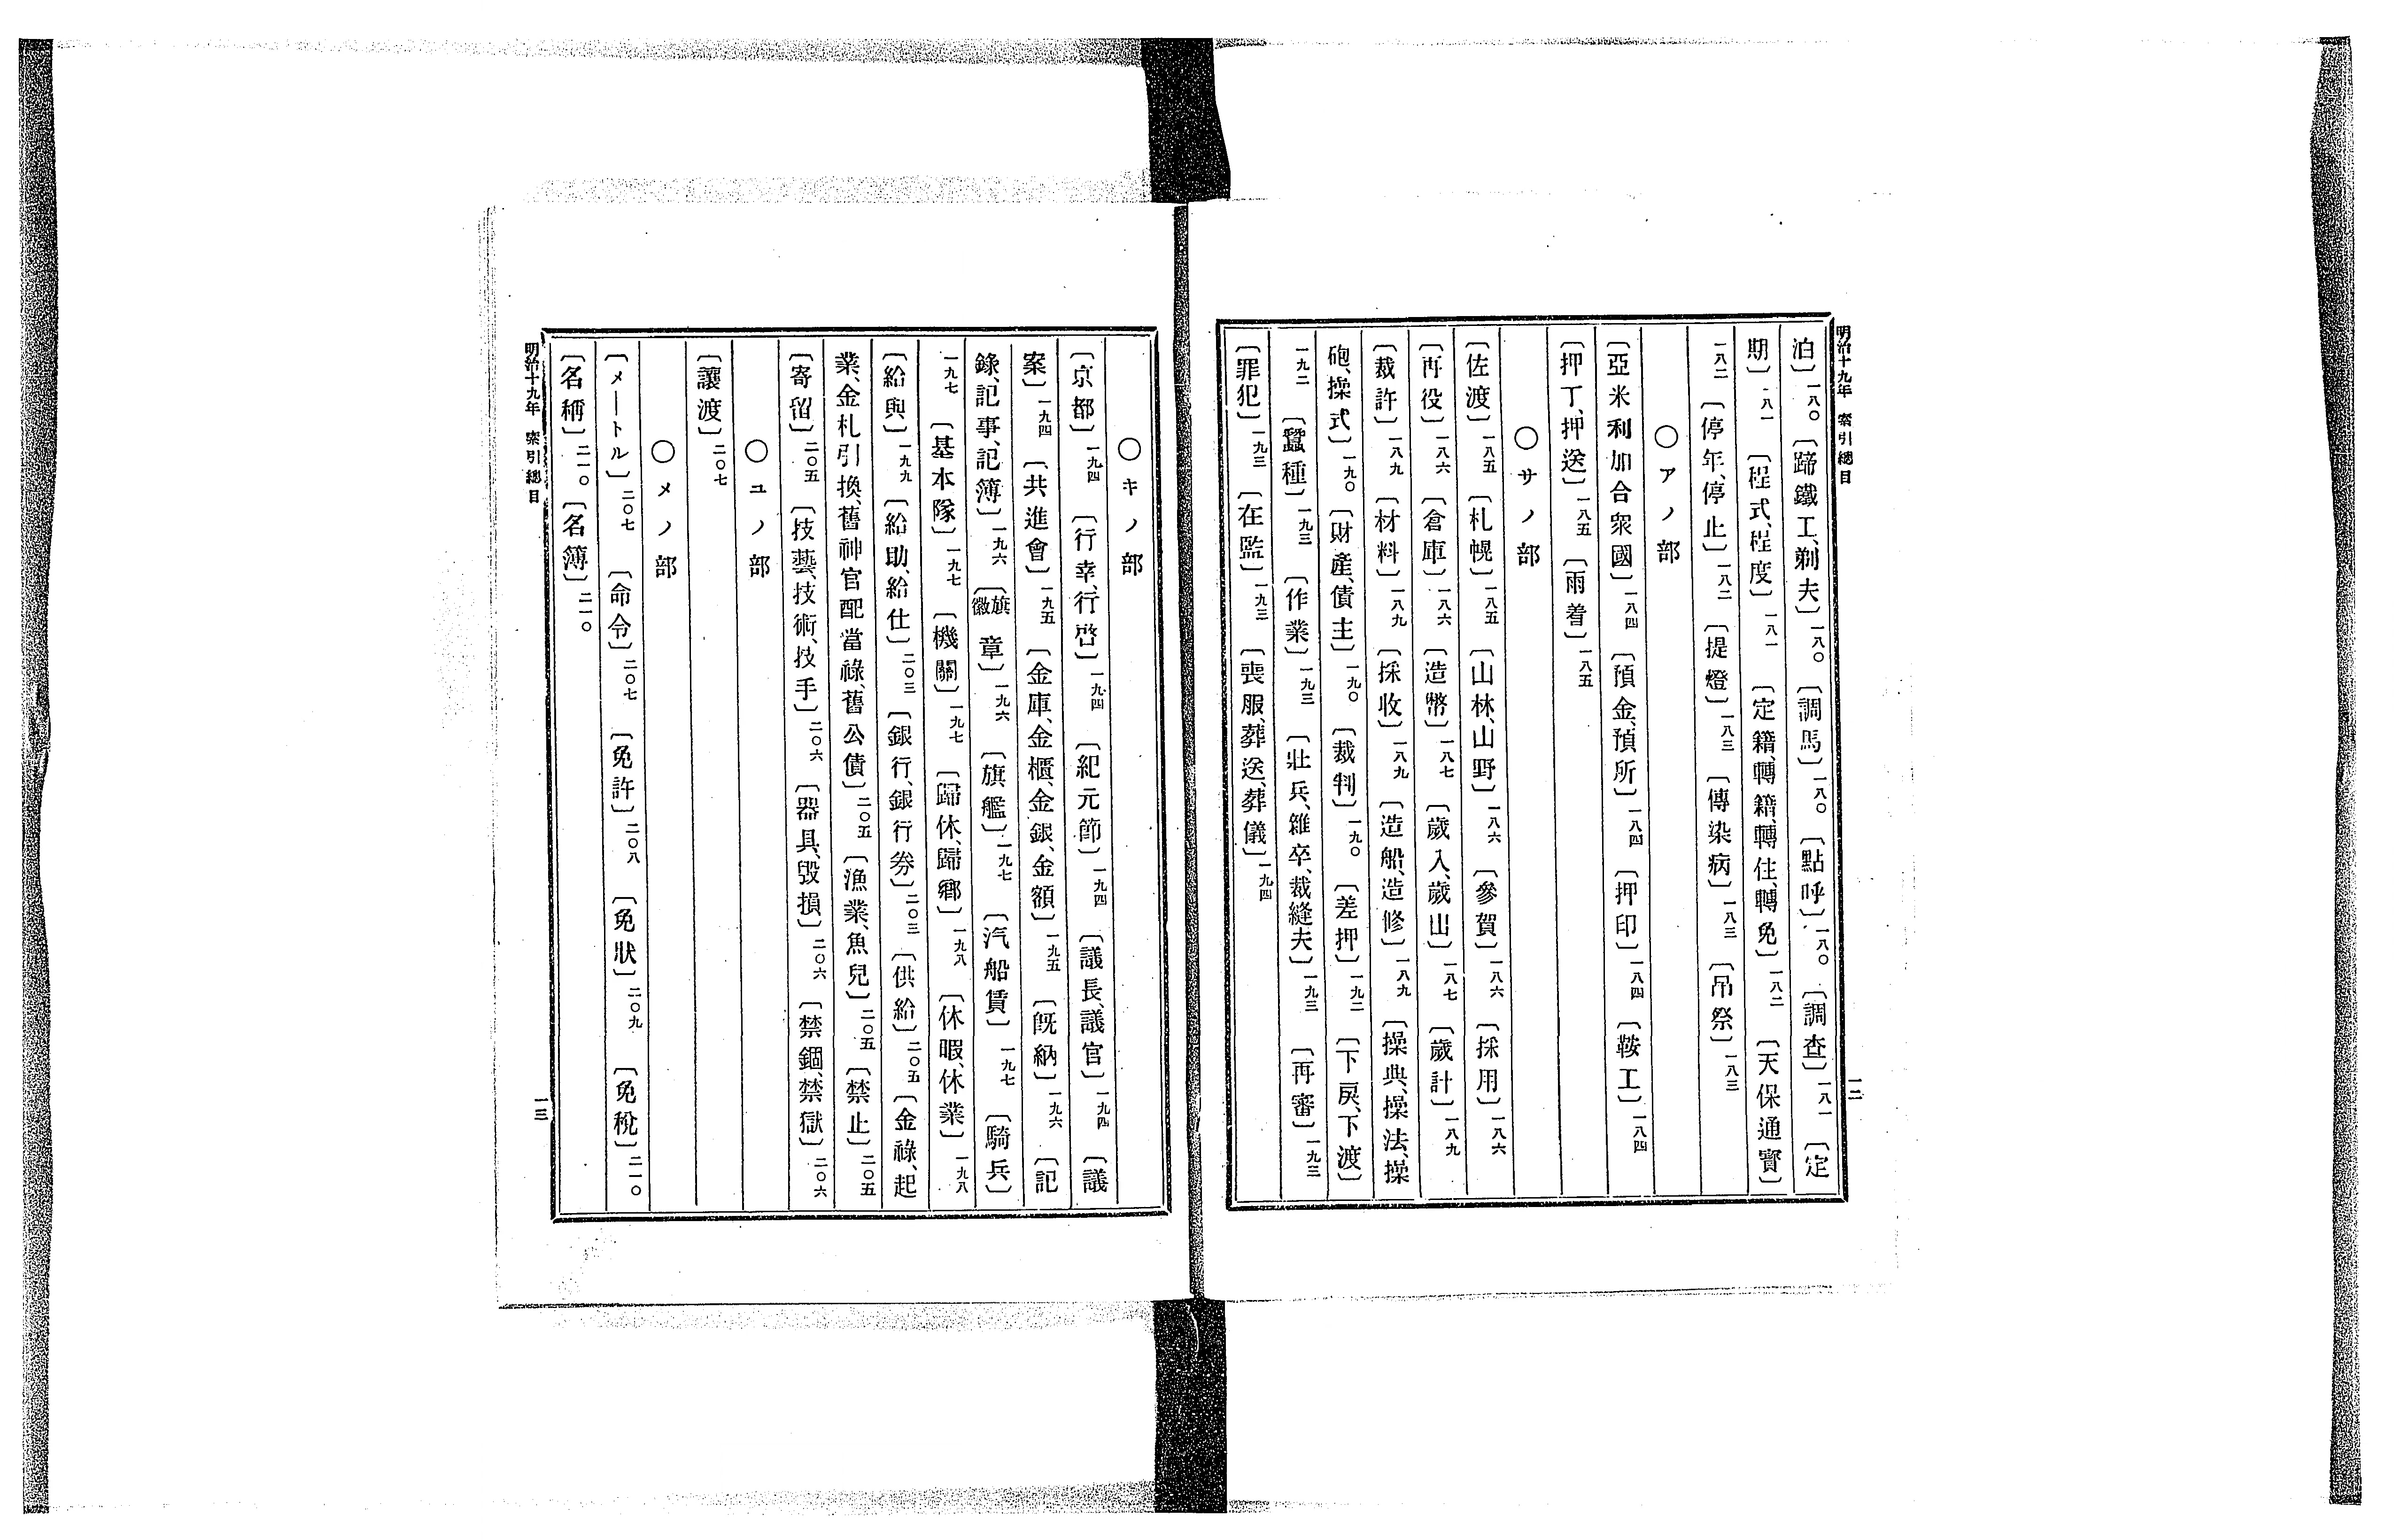 明治十九年 索引總目 一二
泊〕一八〇〔蹄鐵工、剃夫〕一八〇〔調馬〕一八〇〔點呼〕一八〇〔調查〕一八一〔定
期〕一八一〔程式、程度〕一八一〔定籍、轉籍、轉住、轉免〕一八二〔天保通寶〕
一八二〔停年、停止〕一八二〔提燈〕一八三〔傳染病〕一八三〔吊祭〕一八三
〇アノ部
〔亞米利加合衆國〕一八四〔預金、預所〕一八四〔押印〕一八四〔鞍工〕一八四
〔押丁、押送〕一八五〔雨着〕一八五
〇サノ部
〔佐渡〕一八五〔札幌〕一八五〔山林、山野〕一八六〔參賀〕一八六〔採用〕一八六
〔再役〕一八六〔倉庫〕一八六〔造幣〕一八七〔歲入、歲出〕一八七〔歲計〕一八九
〔裁許〕一八九〔材料〕一八九〔採收〕一八九〔造船、造修〕一八九〔操典、操法、操
砲、操式〕一九〇〔財產、債主〕一九〇〔裁判〕一九〇〔差押〕一九二〔下戾、下渡〕
一九二〔蠶種〕一九三〔作業〕一九三〔壯兵、雜卒、裁縫夫〕一九三〔再審〕一九三
〔罪犯〕一九三〔在監〕一九三〔喪服、葬送、葬儀〕一九四
〇キノ部
〔京都〕一九四〔行幸、行啓〕一九四〔紀元節〕一九四〔議長、議官〕一九四〔議
案〕一九四〔共進會〕一九五〔金庫、金櫃、金銀、金額〕一九五〔既納〕一九六〔記
錄、記事、記簿〕一九六〔旗徽章〕一九六〔旗艦〕一九七〔汽船賃〕一九七〔騎兵〕
一九七〔基本隊〕一九七〔機關〕一九七〔歸休、歸鄉〕一九八〔休暇、休業〕一九八
〔給與〕一九九〔給助、給仕〕二〇三〔銀行、銀行券〕二〇三〔供給〕二〇五〔金祿、起
業、金札引換、舊神官配當祿、舊公債〕二〇五〔漁業、魚兒〕二〇五〔禁止〕二〇五
〔寄留〕二〇五〔技藝、技術、技手〕二〇六〔器具、毀損〕二〇六〔禁錮、禁獄〕二〇六
〇ユノ部
〔讓渡〕二〇七
〇メノ部
〔メートル〕二〇七〔命令〕二〇七〔免許〕二〇八〔免狀〕二〇九〔免稅〕二一〇
〔名稱〕二一〇〔名簿〕二一〇
明治十九年 索引總目 一三